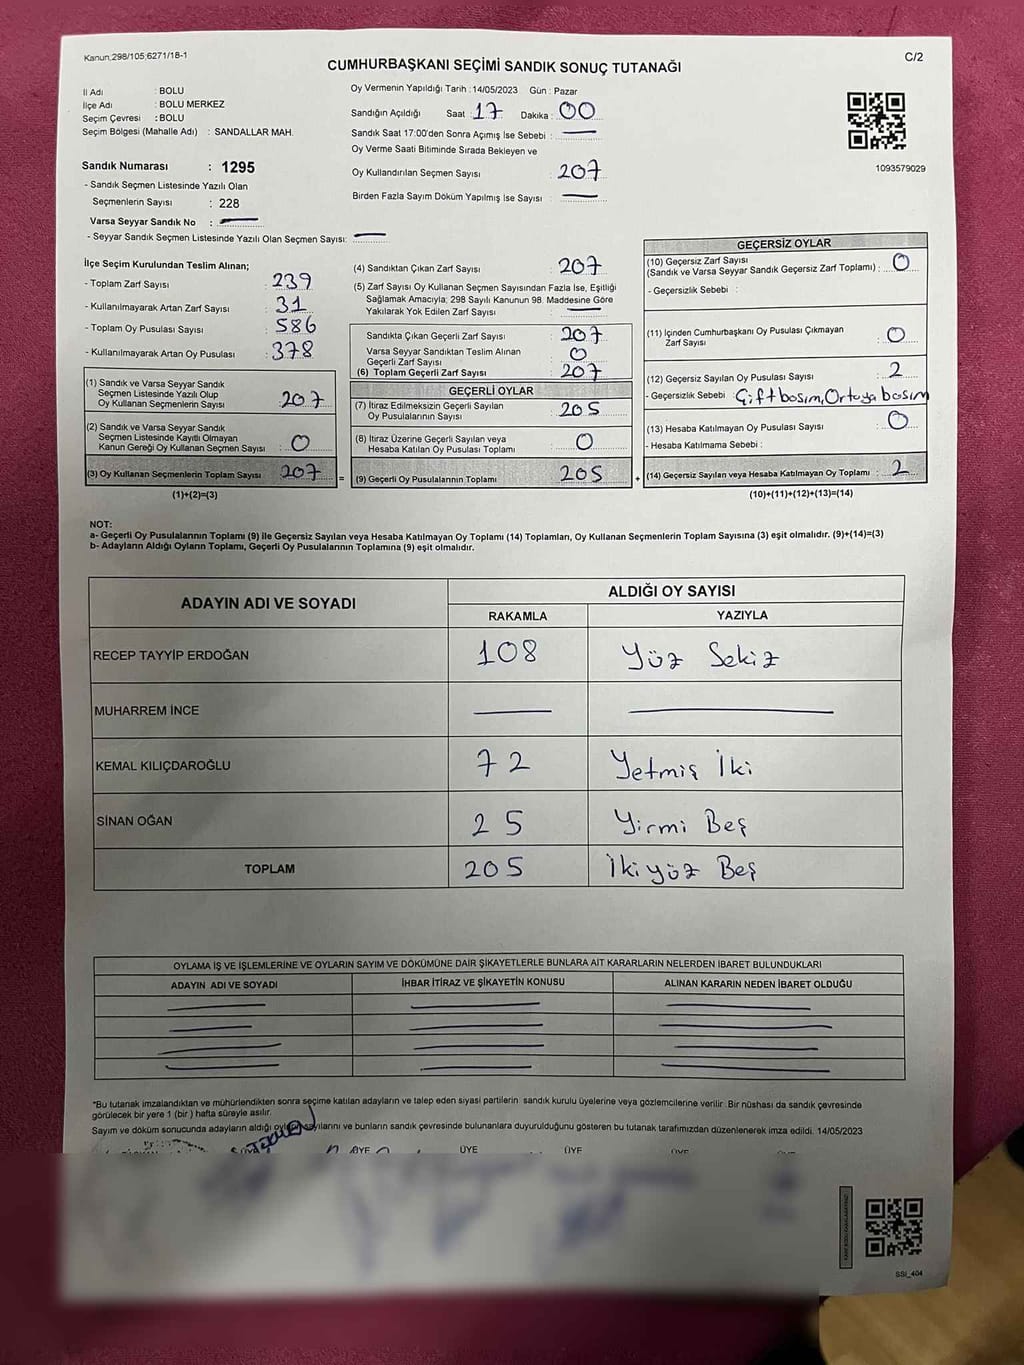 Kanun:298/105;6271/18-1
C/2
CUMHURBAŞKANI SEÇİMİ SANDIK SONUÇ TUTANAĞI
İl Adı : BOLU
İlçe Adı : BOLU MERKEZ
Seçim Çevresi : BOLU
Seçim Bölgesi (Mahalle Adı) : SANDALLAR MAH.
Oy Vermenin Yapıldığı Tarih : 14/05/2023 Gün : Pazar
Sandığın Açıldığı Saat : 17 Dakika : 00
Sandık Saat 17:00'den Sonra Açımış İse Sebebi :
Oy Verme Saati Bitiminde Sırada Bekleyen ve
Oy Kullandırılan Seçmen Sayısı : 207
Birden Fazla Sayım Döküm Yapılmış İse Sayısı :
1093579029
Sandık Numarası : 1295
- Sandık Seçmen Listesinde Yazılı Olan
Seçmenlerin Sayısı : 228
Varsa Seyyar Sandık No :
- Seyyar Sandık Seçmen Listesinde Yazılı Olan Seçmen Sayısı:
İlçe Seçim Kurulundan Teslim Alınan;
- Toplam Zarf Sayısı : 239
- Kullanılmayarak Artan Zarf Sayısı : 31
- Toplam Oy Pusulası Sayısı : 586
- Kullanılmayarak Artan Oy Pusulası : 378
(1) Sandık ve Varsa Seyyar Sandık
Seçmen Listesinde Yazılı Olup
Oy Kullanan Seçmenlerin Sayısı : 207
(2) Sandık ve Varsa Seyyar Sandık
Seçmen Listesinde Kayıtlı Olmayan
Kanun Gereği Oy Kullanan Seçmen Sayısı : 0
(3) Oy Kullanan Seçmenlerin Toplam Sayısı : 207
(1)+(2)=(3)
(4) Sandıktan Çıkan Zarf Sayısı : 207
(5) Zarf Sayısı Oy Kullanan Seçmen Sayısından Fazla İse, Eşitliği
Sağlamak Amacıyla; 298 Sayılı Kanunun 98. Maddesine Göre
Yakılarak Yok Edilen Zarf Sayısı :
Sandıkta Çıkan Geçerli Zarf Sayısı : 207
Varsa Seyyar Sandıktan Teslim Alınan
Geçerli Zarf Sayısı : 0
(6) Toplam Geçerli Zarf Sayısı : 207
GEÇERLİ OYLAR
(7) İtiraz Edilmeksizin Geçerli Sayılan
Oy Pusulalarının Sayısı : 205
(8) İtiraz Üzerine Geçerli Sayılan veya
Hesaba Katılan Oy Pusulası Toplamı : 0
= (9) Geçerli Oy Pusulalarının Toplamı : 205
GEÇERSİZ OYLAR
(10) Geçersiz Zarf Sayısı
(Sandık ve Varsa Seyyar Sandık Geçersiz Zarf Toplamı) : 0
- Geçersizlik Sebebi :
(11) İçinden Cumhurbaşkanı Oy Pusulası Çıkmayan
Zarf Sayısı : 0
(12) Geçersiz Sayılan Oy Pusulası Sayısı : 2
- Geçersizlik Sebebi : Çift basım, Ortaya basım
(13) Hesaba Katılmayan Oy Pusulası Sayısı : 0
- Hesaba Katılmama Sebebi :
+ (14) Geçersiz Sayılan veya Hesaba Katılmayan Oy Toplamı : 2
(10)+(11)+(12)+(13)=(14)
NOT:
a- Geçerli Oy Pusulalarının Toplamı (9) ile Geçersiz Sayılan veya Hesaba Katılmayan Oy Toplamı (14) Toplamları, Oy Kullanan Seçmenlerin Toplam Sayısına (3) eşit olmalıdır. (9)+(14)=(3)
b- Adayların Aldığı Oyların Toplamı, Geçerli Oy Pusulalarının Toplamına (9) eşit olmalıdır.
ADAYIN ADI VE SOYADI
ALDIĞI OY SAYISI
RAKAMLA YAZIYLA
RECEP TAYYİP ERDOĞAN 108 Yüz Sekiz
MUHARREM İNCE
KEMAL KILIÇDAROĞLU 72 Yetmiş İki
SİNAN OĞAN 25 Yirmi Beş
TOPLAM 205 İki yüz Beş
OYLAMA İŞ VE İŞLEMLERİNE VE OYLARIN SAYIM VE DÖKÜMÜNE DAİR ŞİKAYETLERLE BUNLARA AİT KARARLARIN NELERDEN İBARET BULUNDUKLARI
ADAYIN ADI VE SOYADI İHBAR İTİRAZ VE ŞİKAYETİN KONUSU ALINAN KARARIN NEDEN İBARET OLDUĞU
*Bu tutanak imzalandıktan ve mühürlendikten sonra seçime katılan adayların ve talep eden siyasi partilerin sandık kurulu üyelerine veya gözlemcilerine verilir. Bir nüshası da sandık çevresinde
görülecek bir yere 1 (bir) hafta süreyle asılır.
Sayım ve döküm sonucunda adayların aldığı oyların sayılarını ve bunların sandık çevresinde bulunanlara duyurulduğunu gösteren bu tutanak tarafımızdan düzenlenerek imza edildi. 14/05/2023
ÜYE ÜYE ÜYE
SSİ_404